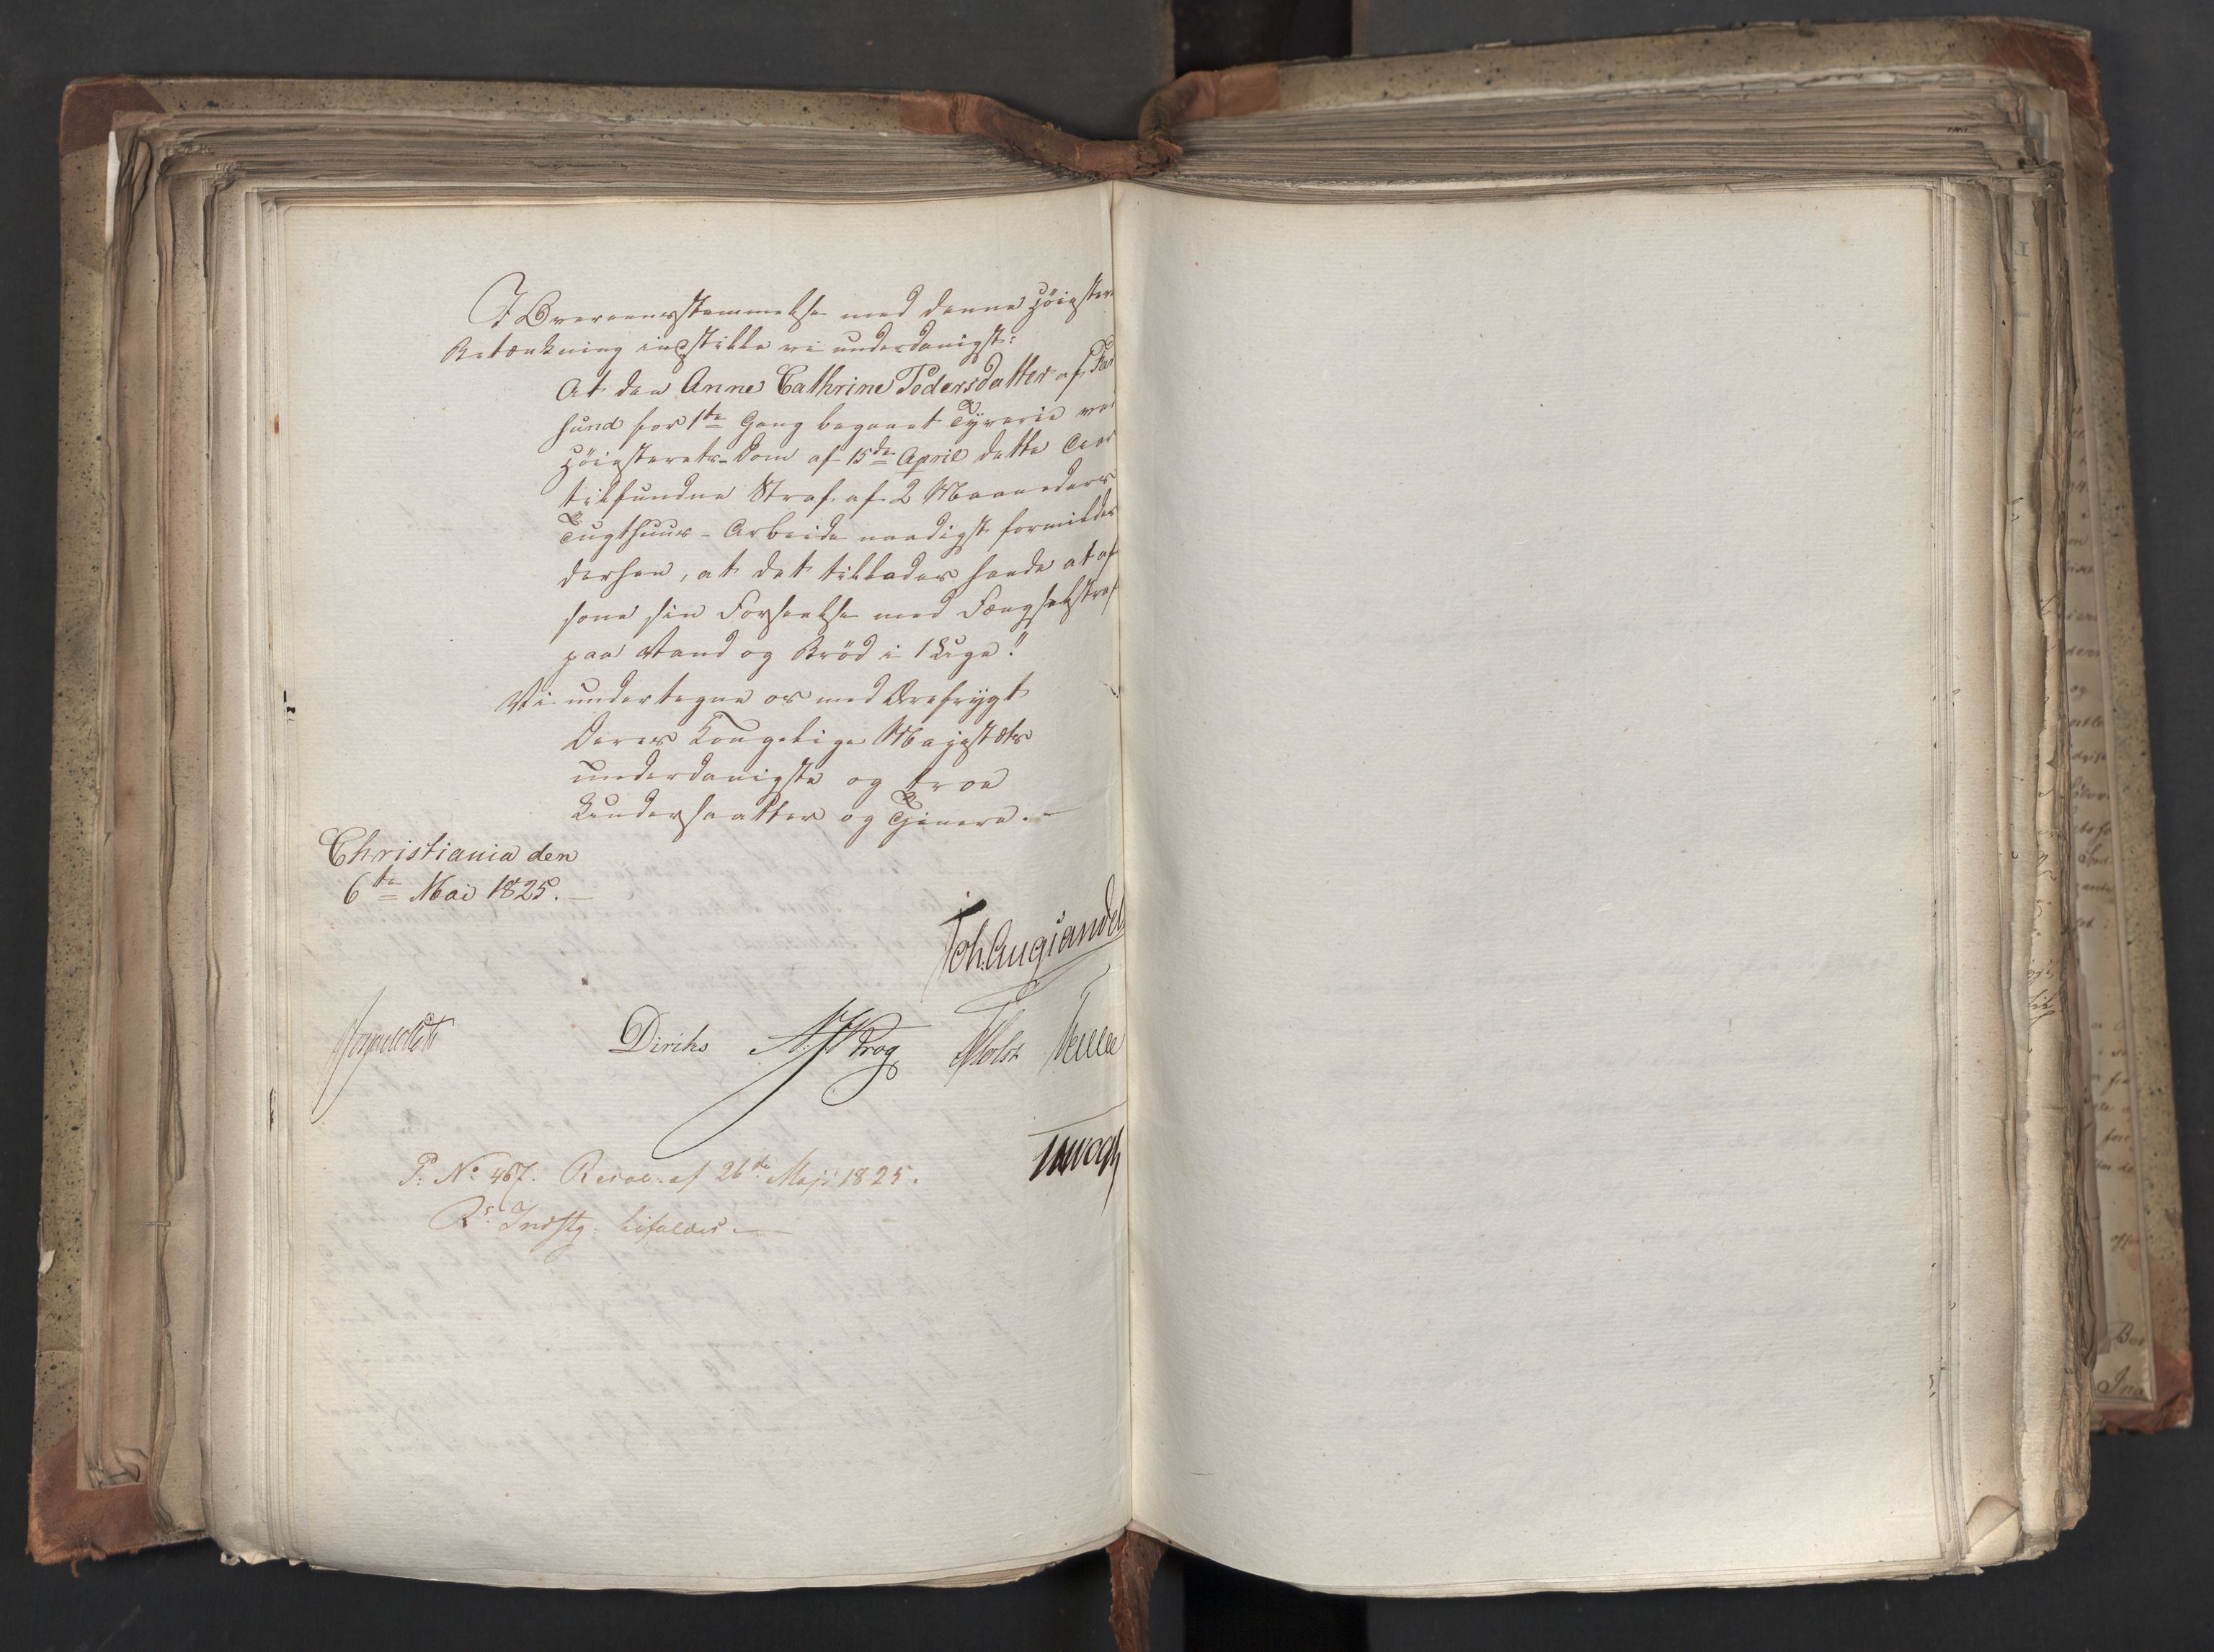 I Overeensstemmelse med denne Høiester
Betænkning indstille vi underdanigst:
At den Anne Cathrine Pedersdatter af Far
sund for 1ste Gang begaaet Tyverie ved
Høiesterets-Dom af 15de April dette Aar
tilfundne Straf af 2 Maaneders
Tugthuus-Arbeide naadigst formildes
derhen, at det tillades hende at af
sone sin Forseelse med Fængselstraf
paa Vand og Brød i 1 Uge."
Vi undertegne os med Ærefrygt
Deres Kongelige Majestæts
underdanigste og troe
Undersaatter og Tjenere.—
Christiania den
6te Mai 1825.—
Joh. Aug Sandels
Sommerhielm Diriks A. J. Krog Holst
P. No. 467. Resol. af 26de Maji 1825.
Rs Indstg. bifaldes.—